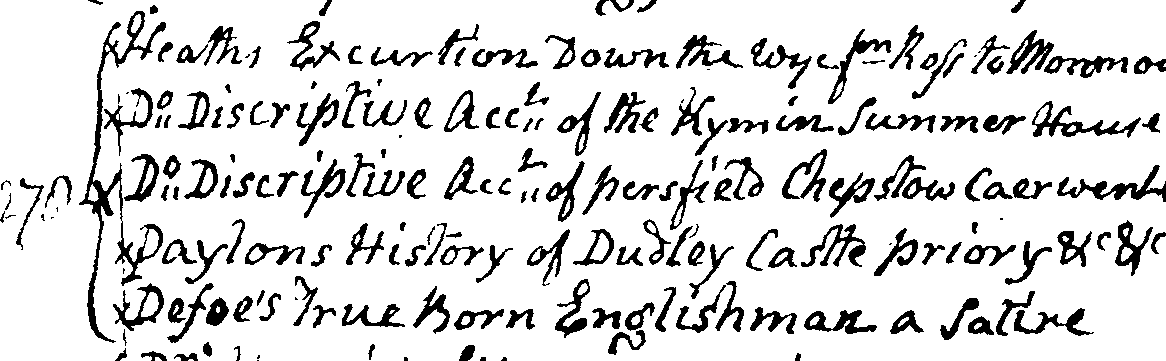 Heaths Excurtion Down the Wye fm Ross to Monmo
Do Discriptive Acct of the Kymin Summer House
270 Do Discriptive Acct of persfield Chepstow Caerwent
Paylons History of Dudley Castle priory &c &c
Defoe's True Born Englishman a Satire